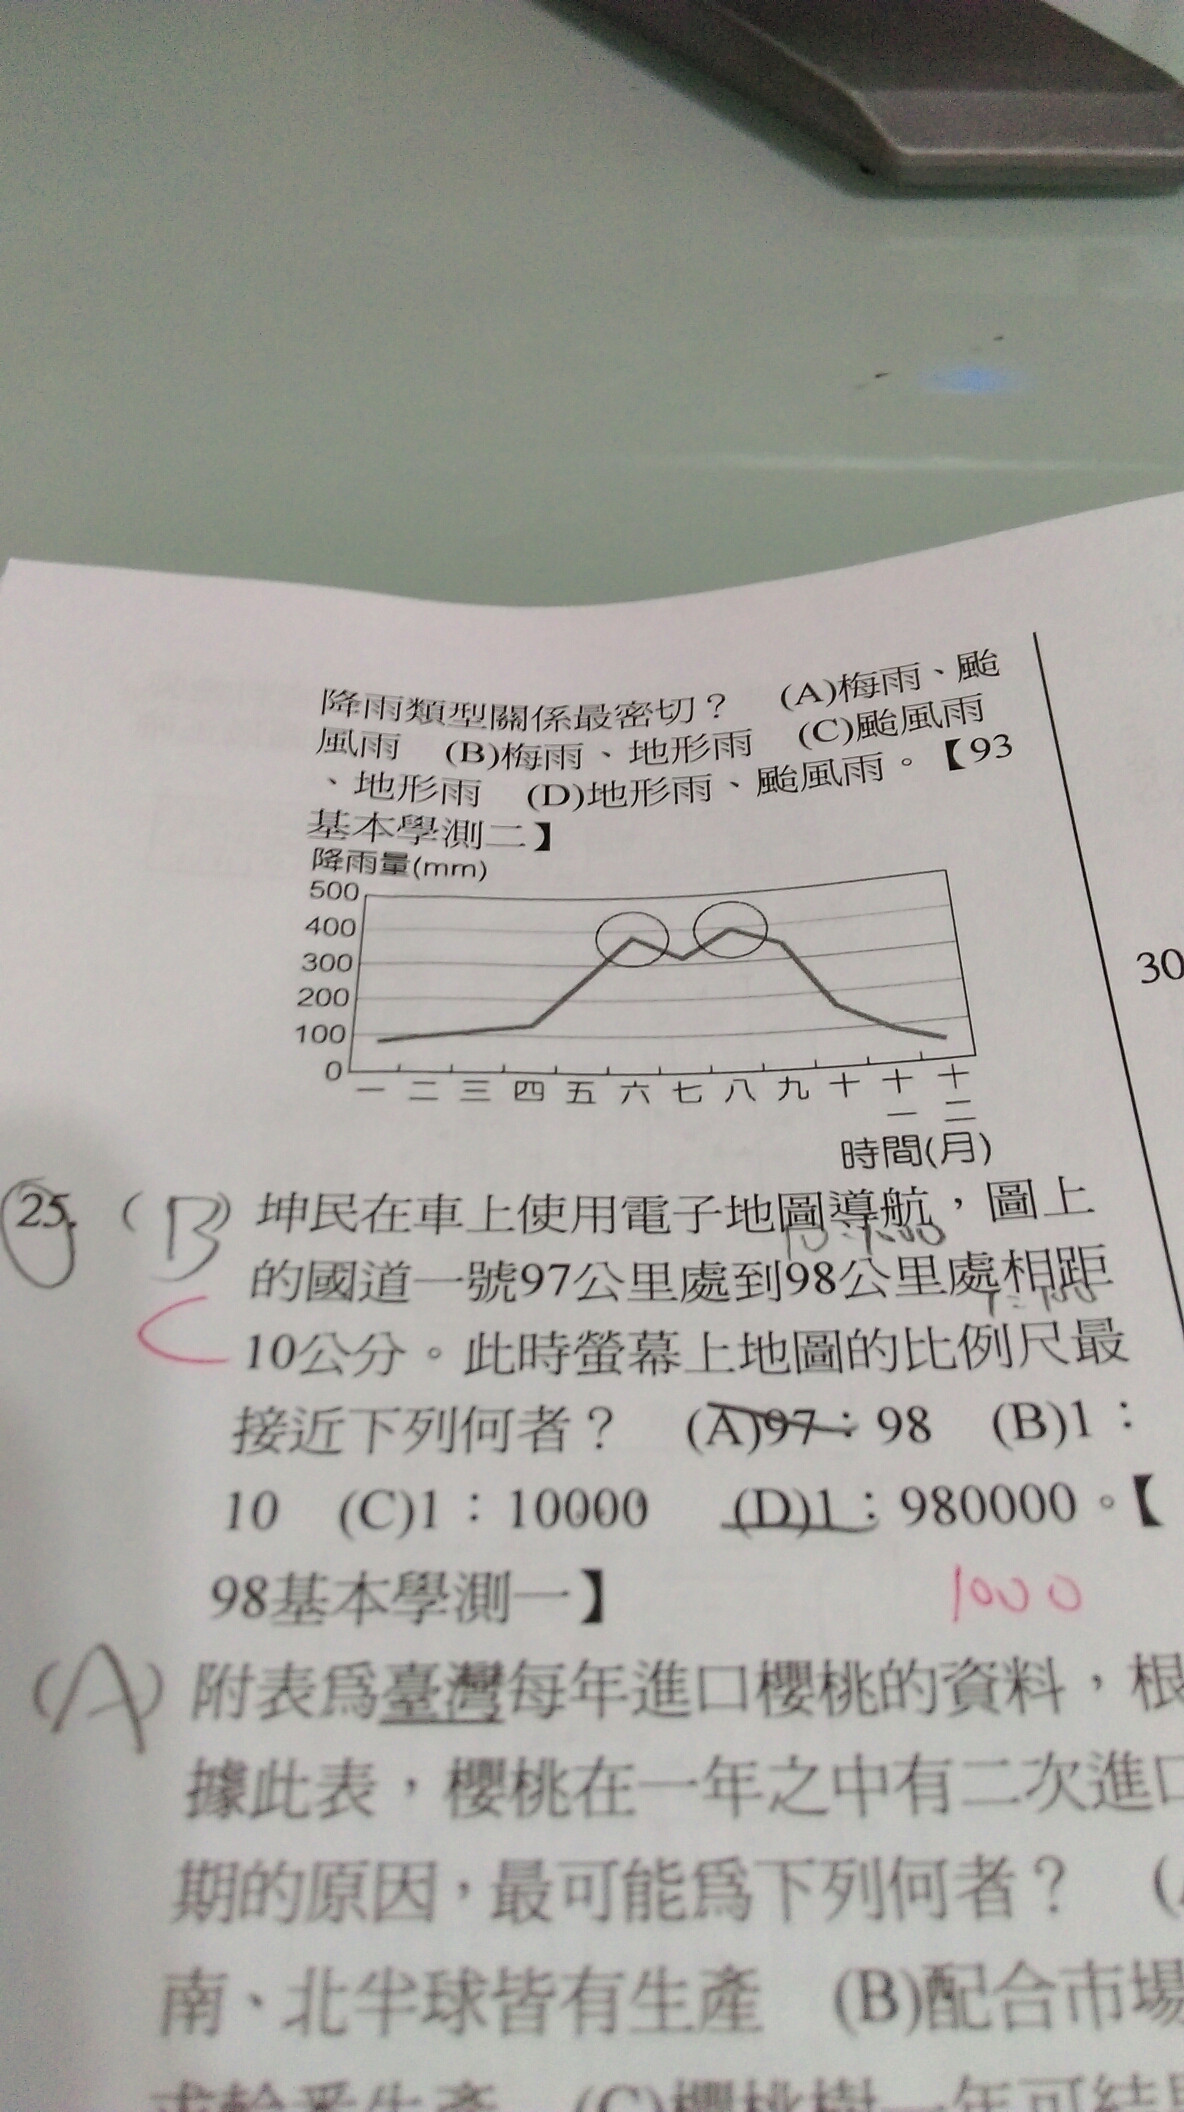 降雨類型關係最密切？　(A)梅雨、颱
風雨　(B)梅雨、地形雨　(C)颱風雨
、地形雨　(D)地形雨、颱風雨。【93
基本學測二】
降雨量(mm)
500
400
300
200
100
0
一 二 三 四 五 六 七 八 九 十 十一 十二
時間(月)
30
25. (B) 坤民在車上使用電子地圖導航，圖上
的國道一號97公里處到98公里處相距
C 10公分。此時螢幕上地圖的比例尺最
接近下列何者？　(A)97：98　(B)1：
10　(C)1：10000　(D)1：980000。【
98基本學測一】
1000
(A) 附表為臺灣每年進口櫻桃的資料，根
據此表，櫻桃在一年之中有二次進口
期的原因，最可能為下列何者？　(
南、北半球皆有生產　(B)配合市場
(C)櫻桃樹一年可結